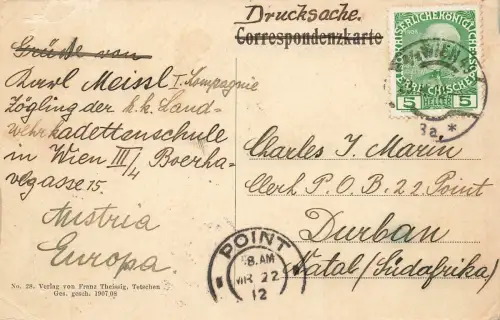 Drucksache.
Correspondenzkarte
Grüße von
Karl Meissl I. Kompagnie
Zögling der k.k. Land-
wehrkadettenschule
in Wien III/4 Boerha-
vegasse 15.
Austria
Europa.
No. 28. Verlag von Franz Theissig, Tetschen
Ges. gesch. 1907/08
WIEN
3a. *
5 HELLER 5
Charles J. Marin
Clerk P.O.B. 22 Point
Durban
Natal (Südafrika)
POINT
8. AM
MR 22
12